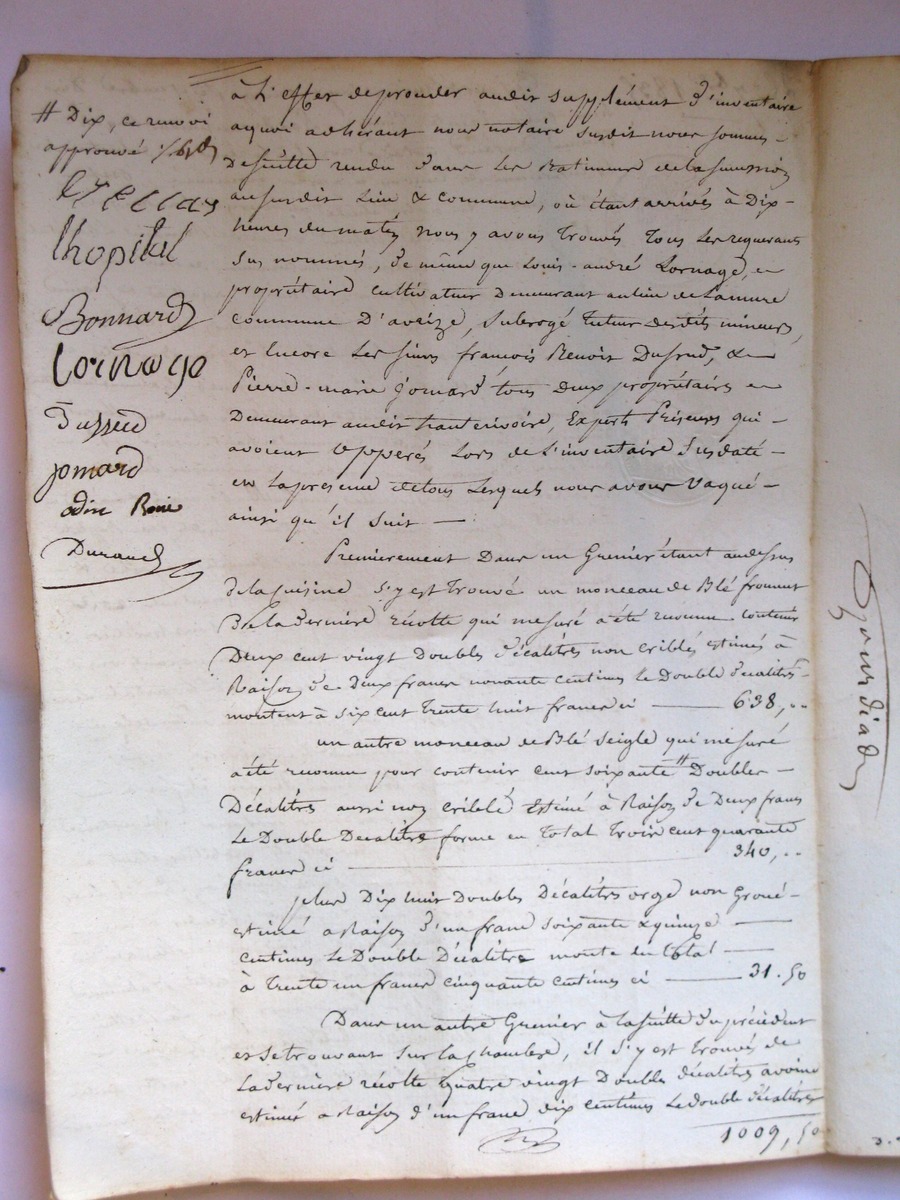 # Dix, ce renvoi
approuvé
lhopital
Bonnard
Cornage
Dussud
jomard
Durand
à l'effet de proceder audit supplément d'inventaire
aquoi adhérant nous notaire susdit nous sommes
de suitte rendu dans les Batimens de la succession
au susdit lieu & commune, où étant arrivés à Dix
heures du matin nous y avons trouvés tous les requerants
sus nommés, de même que Louis-andré Cornage,
propriétaire cultivateur demeurant au lieu de Lamure
commune D'aveize, subrogé tuteur desdits mineurs,
et encore les sieurs françois Benoit Dussud, &
Pierre-marie Jomard tous deux propriétaires
Demeurant audit hauterivoire, Experts Priseurs qui
avoient oppérés lors de l'inventaire susdaté
en la presence de tous lesquels nous avons vaqué
ainsi qu'il suit —
Premierement Dans un Grenier étant audessus
de la cuisine s'y est trouvé un monceau de Blé froment
de la derniére récolte qui mesuré a été reconnu contenir
Deux cent vingt Doubles décalitres non criblés estimés à
Raison de deux francs nonante centimes le Double décalitres
montent à six cent trente huit francs ci — 638,..
un autre monceau de Blé seigle qui mesuré
a été reconnu pour contenir cent soixante # Doubles
Décalitres aussi non criblé Estimé à Raison de Deux francs
le Double Décalitre forme en total trois cent quarante
francs ci — 340,..
plus Dix huit Doubles Décalitres orge non
estimé a Raison d'un franc soixante & quinze
centimes le Double Décalitre monte en total
à trente un francs cinquante centimes ci — 31.50
Dans un autre Grenier à la suitte du précédent
et se trouvant sur la chambre, il s'y est trouvés de
la derniére récolte quatre vingt Doubles décalitres avoine
estimés a Raison d'un franc dix centimes le double décalitres
1009,50